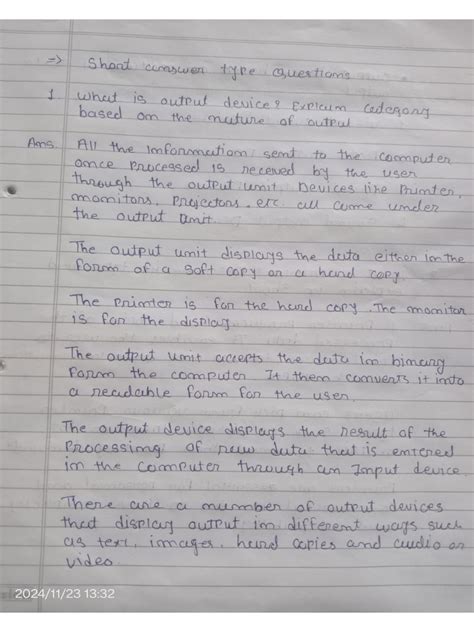 => Short answer type questions
1. What is output device? Explain category
based on the nature of output
Ans. All the information sent to the computer
once processed is received by the user
through the output unit. Devices like printer,
monitors, projectors, etc. all come under
the output unit.
The output unit displays the data either in the
form of a soft copy or a hard copy.
The printer is for the hard copy. The monitor
is for the display.
The output unit accepts the data in binary
form the computer It them converts it into
a readable form for the user.
The output device displays the result of the
processing of raw data that is entered
in the computer through an Input device.
There are a number of output devices
that display output in different ways such
as text, images, hard copies and audio or
video.
2024/11/23 13:32